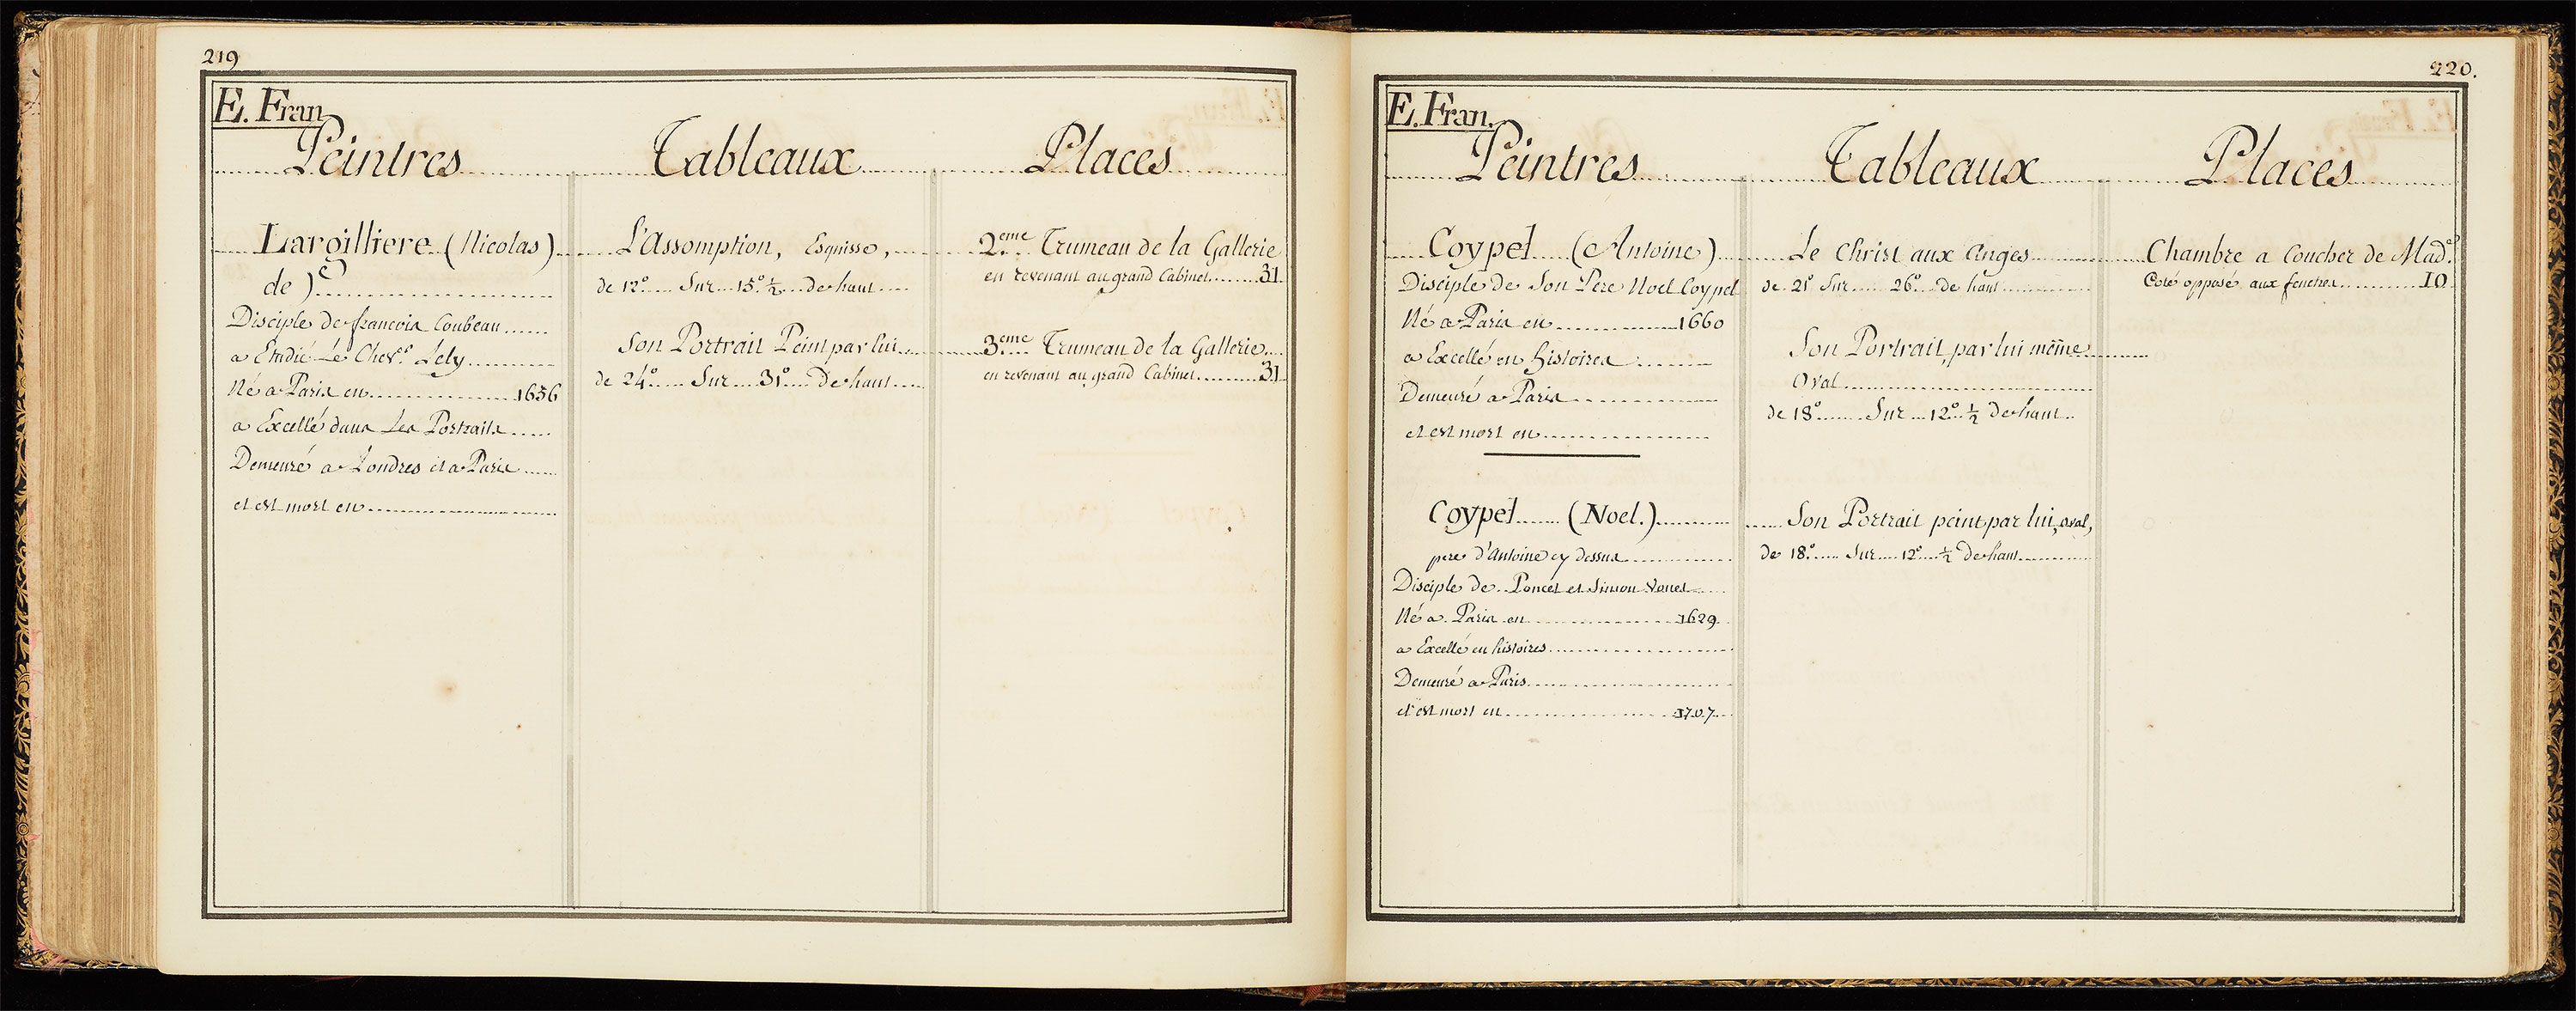 219
E. Fran.
Peintres Tableaux Places
Largilliere (Nicolas) L'Assomption, Esquisse, 2.eme Trumeau de la Gallerie
de ) de 12º Sur 15º ½ de haut en revenant au grand Cabinet 31
Disciple de francois Coubeau
a Etudié Le Chev.er Lely Son Portrait Peint par lui 3.eme Trumeau de la Gallerie
Né a Paris en 1656 de 24º Sur 31º De haut en revenant au grand Cabinet 31
a Excellé dans Les Portraits
Demeuré a Londres et a Paris
et est mort en
220.
E. Fran.
Peintres Tableaux Places
Coypel (Antoine) Le Christ aux Anges Chambre a Coucher de Mad.e
Disciple de Son Pere Noel Coypel de 21º Sur 26º de haut Coté opposé aux fenetres 10
Né a Paris en 1660
a Excellé en histoires Son Portrait, par lui même
Demeuré a Paris Oval
et est mort en de 18º Sur 12º ½ De haut
Coypel (Noel.) Son Portrait peint par lui, oval,
pere d'Antoine cy dessus de 18º Sur 12º ½ De haut
Disciple de Poncet et Simon Vouet
Né a Paris en 1629
a Excellé en histoires
Demeuré a Paris
et est mort en 1707